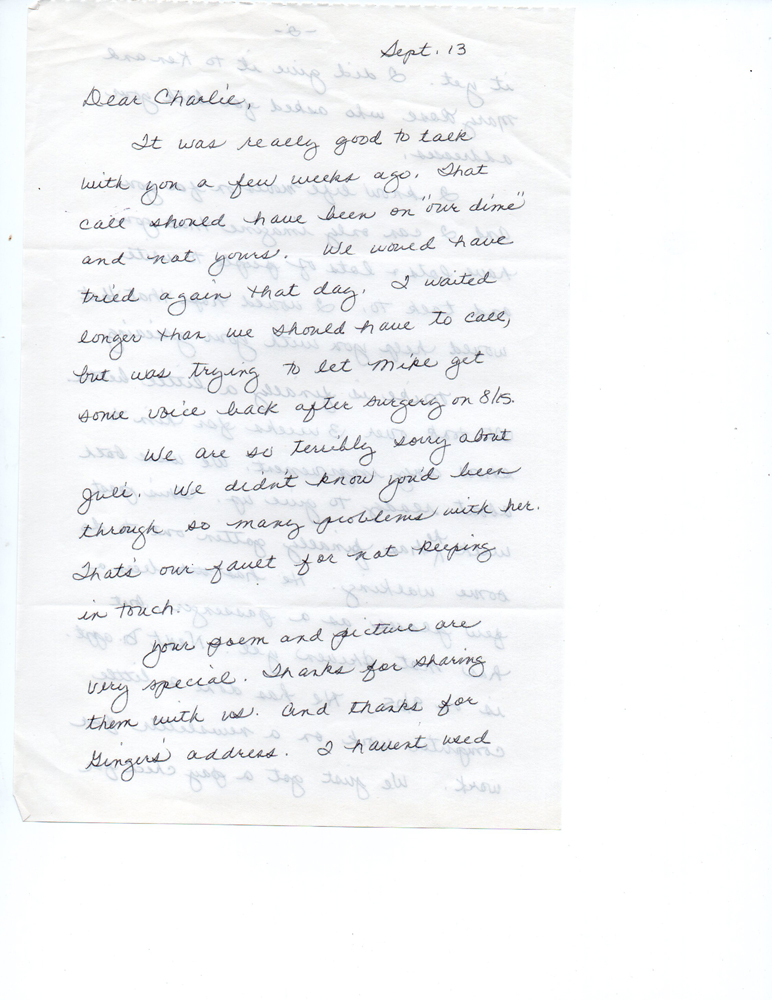 Sept. 13
Dear Charlie,
It was really good to talk
with you a few weeks ago. That
call should have been on "our dime"
and not yours. We would have
tried again that day. I waited
longer than we should have to call,
but was trying to let Mike get
some voice back after surgery on 8/15.
We are so terribly sorry about
Juli. We didn't know you'd been
through so many problems with her.
That's our fault for not keeping
in touch.
Your poem and picture are
very special. Thanks for sharing
them with us. And thanks for
Gingers' address. I haven't used